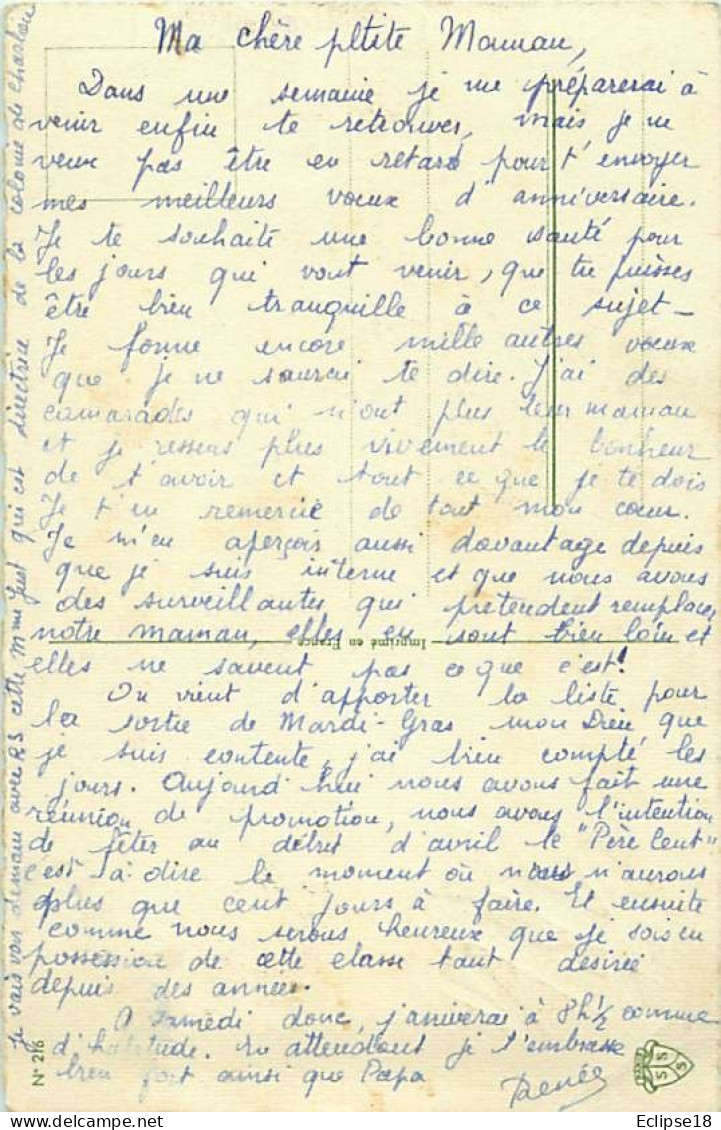 Ma chère petite Maman,
Dans une semaine je me préparerai à
venir enfin te retrouver, mais je ne
veux pas être en retard pour t'envoyer
mes meilleurs vœux d'anniversaire.
Je te souhaite une bonne santé pour
les jours qui vont venir, que tu puisses
être bien tranquille à ce sujet -
Je forme encore mille autres vœux
que je ne saurai te dire. J'ai des
camarades qui n'ont plus leur maman
et je ressens plus vivement le bonheur
de t'avoir et tout ce que je te dois
Je t'en remercie de tout mon cœur.
Je m'en aperçois aussi davantage depuis
que je suis interne et que nous avons
des surveillantes qui prétendent remplacer
notre maman, elles en sont bien loin et
elles ne savent pas ce que c'est!
On vient d'apporter la liste pour
la sortie de Mardi-Gras mon Dieu que
je suis contente, j'ai bien compté les
jours. Aujourd'hui nous avons fait une
réunion de promotion, nous avons l'intention
de fêter au début d'avril le "Père Cent"
c'est à dire le moment où nous n'aurons
plus que cent jours à faire. Et ensuite
comme nous serons heureux que je sois en
possession de cette classe tant désirée
depuis des années.
A samedi donc, j'arriverai à 8h½ comme
d'habitude. En attendant je t'embrasse
bien fort ainsi que Papa
Renée
Je vais voir demain avec RS cette Mme qui est directrice de la colonie de
Imprimé en France
N° 216
Eclipse18